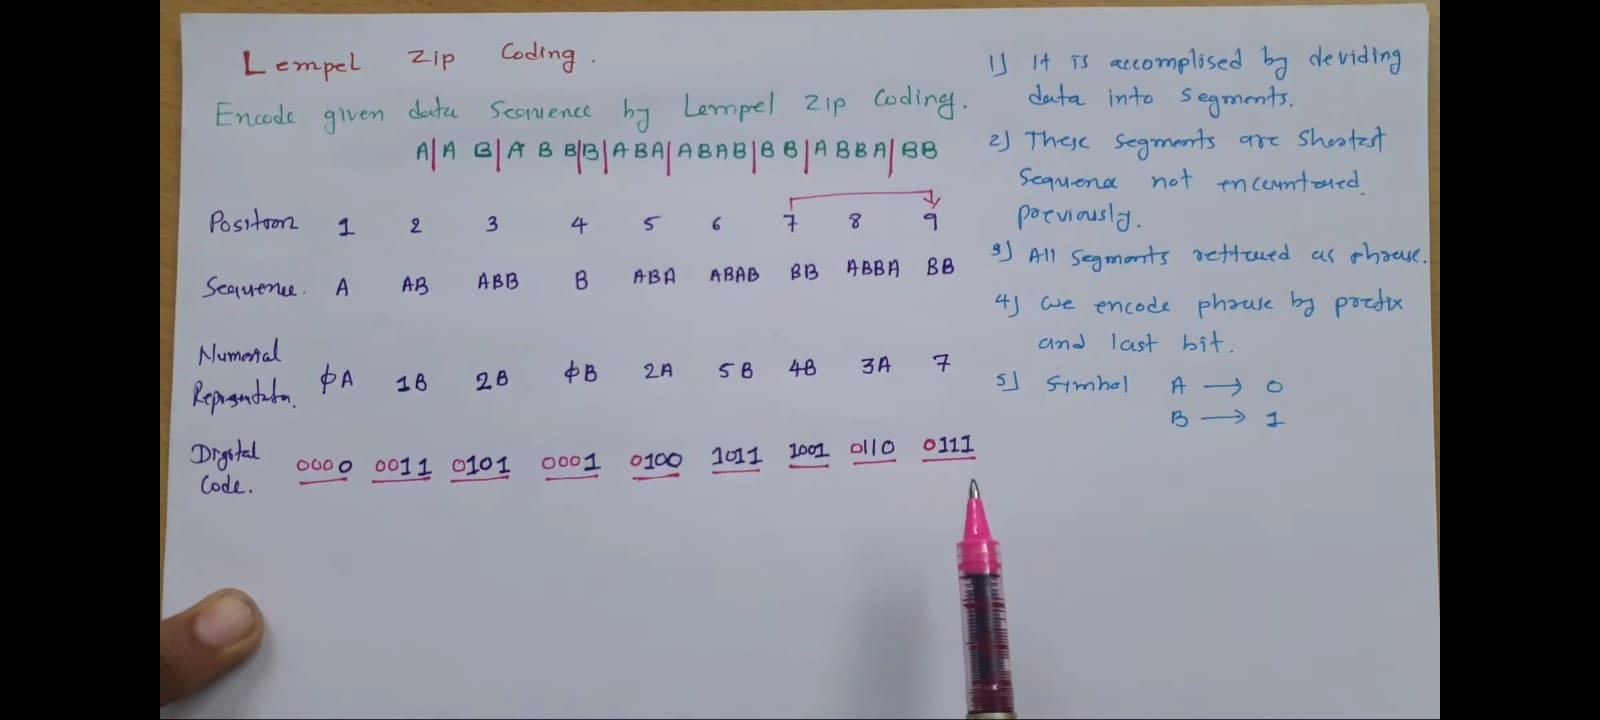 Lempel Zip Coding.
Encode given data Sequence by Lempel Zip Coding.
A|A B|A B B|B|A B A|A B A B|B B|A B B A|B B
Position 1 2 3 4 5 6 7 8 9
Sequence. A AB ABB B ABA ABAB BB ABBA BB
Numerical
Representation. ϕA 1B 2B ϕB 2A 5B 4B 3A 7
Digital
Code. 0000 0011 0101 0001 0100 1011 1001 0110 0111
1) It is accomplised by deviding
data into segments.
2) These segments are shortest
Sequence not encountered
previously.
3) All segments reffered as phrase.
4) we encode phrase by prefix
and last bit.
5) Symbol A → 0
B → 1